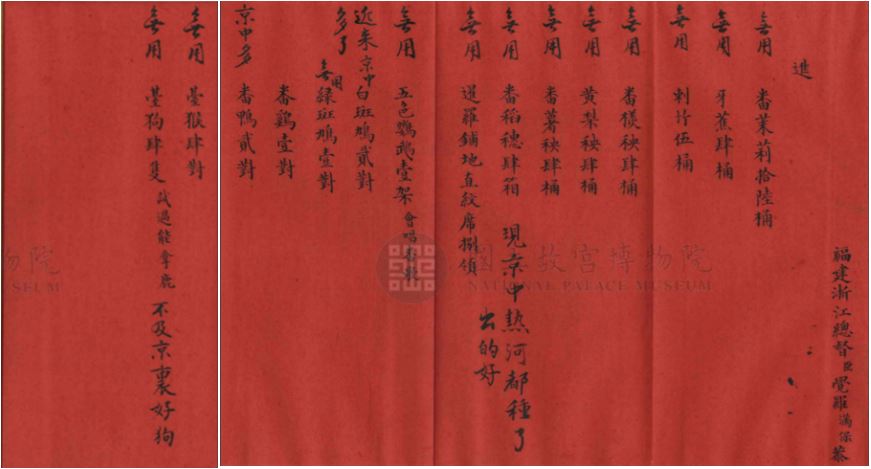 福建浙江總督臣覺羅滿保恭
進
無用 番茉莉拾陸桶
無用 牙蕉肆桶
無用 刺竹伍桶
無用 番檨秧肆桶
無用 黃梨秧肆桶
無用 番薯秧肆桶
無用 番稻穗肆箱 現京中熱河都種了
出的好
無用 暹羅鋪地直紋席捌領
無用 五色鸚鵡壹架 會唱番歌
近來京中 白斑鳩貳對
多了 無用 綠斑鳩壹對
番鷄壹對
京中多 番鴨貳對
無用 臺猴肆對
無用 臺狗肆隻 試過能拿鹿 不及京裏好狗
國立故宮博物院
NATIONAL PALACE MUSEUM
物院
USEUM